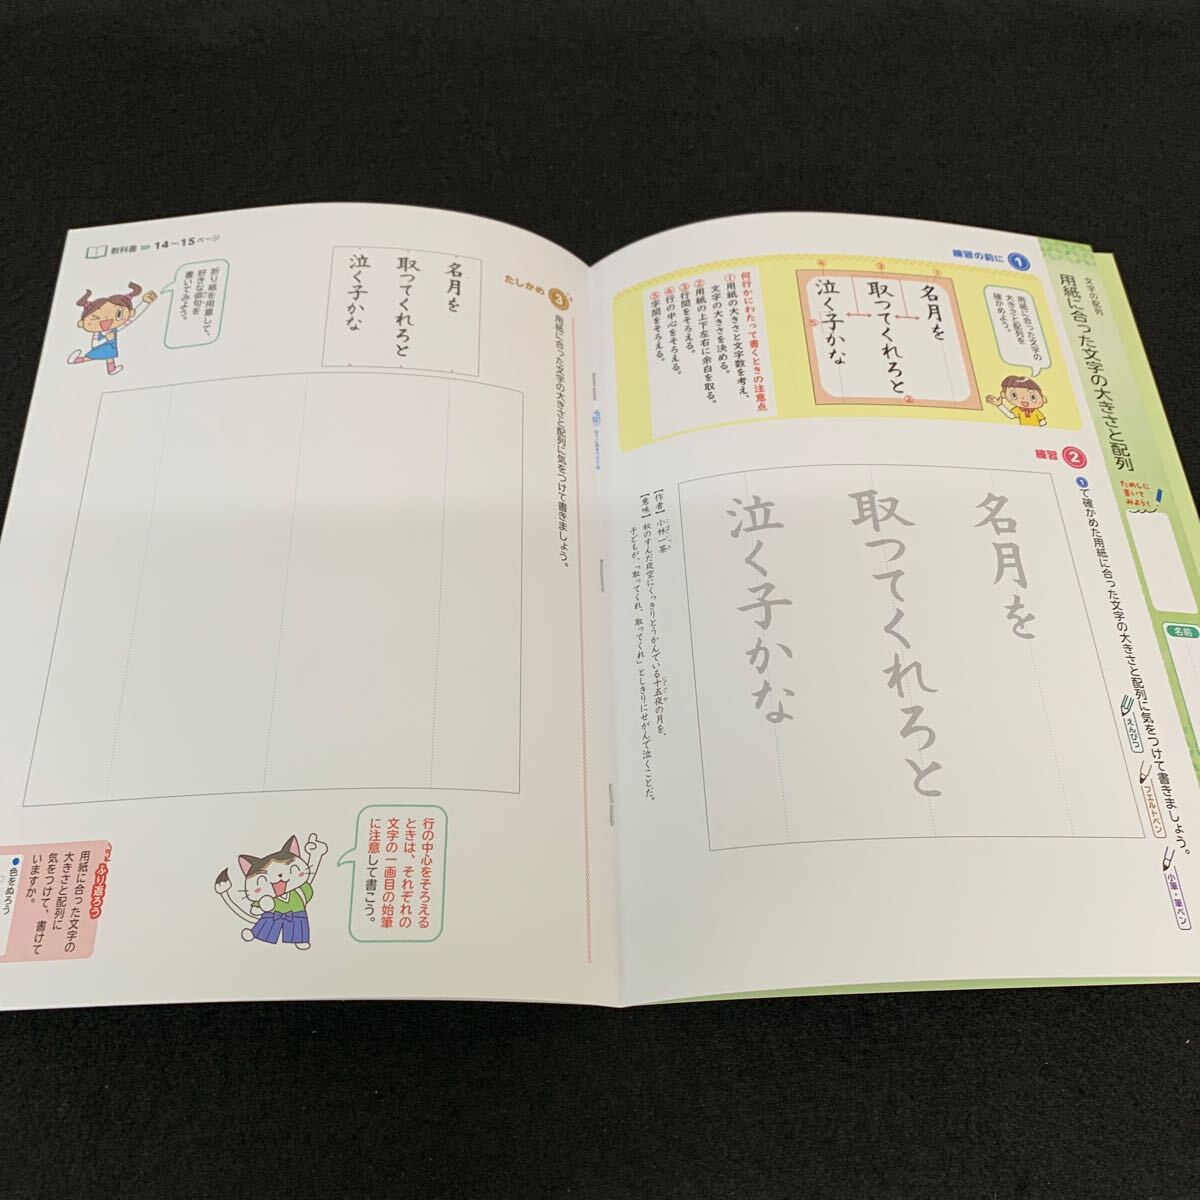 文字の配列
用紙に合った文字の大きさと配列
ためしに
書いて
みよう!
名前
練習の前に 1
用紙に合った文字の
大きさと配列を
確かめよう。
① ③ ④
名月を
取ってくれろと
泣く子かな
② ⑤
何行かにわたって書くときの注意点
①用紙の大きさと文字数を考え、
文字の大きさを決める。
②用紙の上下左右に余白を取る。
③行間をそろえる。
④行の中心をそろえる。
⑤字間をそろえる。
練習 2
1で確かめた用紙に合った文字の大きさと配列に気をつけて書きましょう。
えんぴつ
フェルトペン
小筆・筆ペン
名月を
取ってくれろと
泣く子かな
【作者】小林一茶
【意味】秋のすんだ夜空にくっきりとうかんでいる十五夜の月を、
子どもが、「取ってくれ、取ってくれ」としきりにせがんで泣くことだ。
教科書 14〜15ページ
たしかめ 3
用紙に合った文字の大きさと配列に気をつけて書きましょう。
名月を
取ってくれろと
泣く子かな
折り紙を用意して、
好きな俳句を
書いてみよう。
行の中心をそろえる
ときは、それぞれの
文字の一画目の始筆
に注意して書こう。
ふり返ろう
用紙に合った文字の
大きさと配列に
気をつけて、書けて
いますか。
●色をぬろう